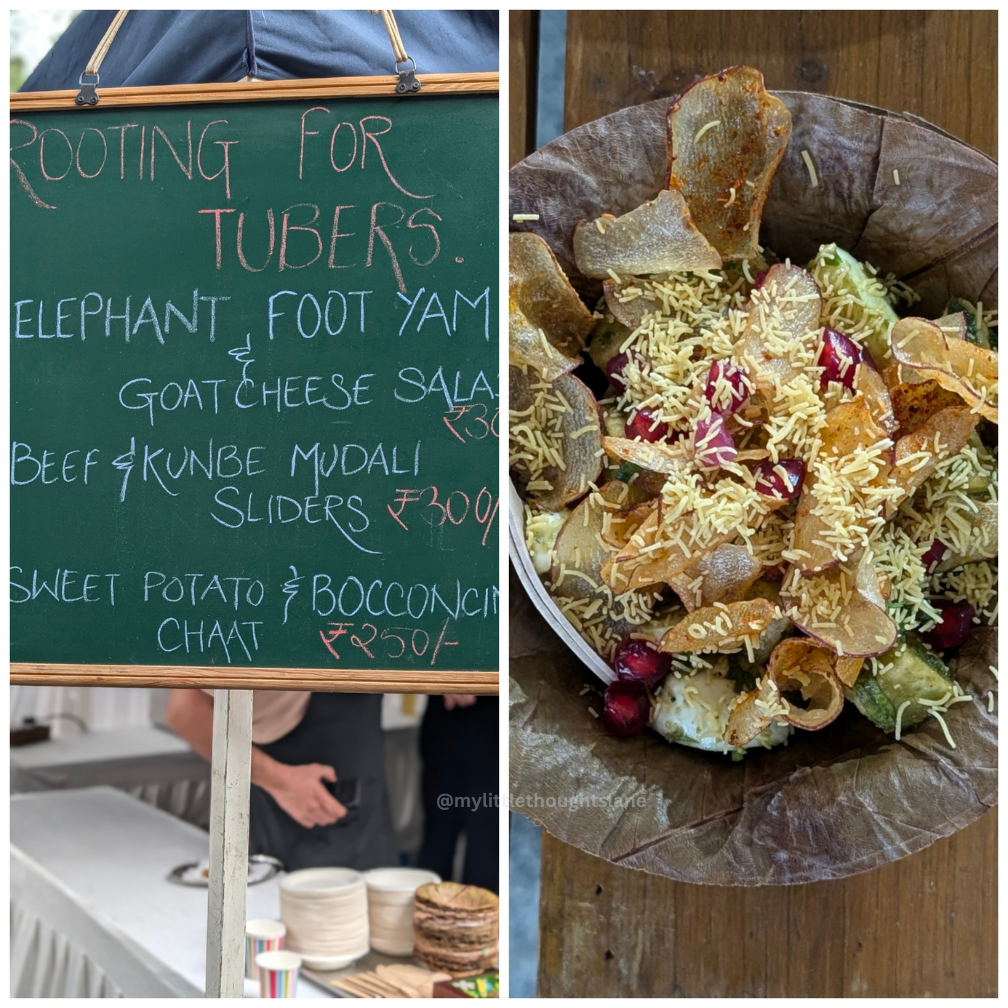 ROOTING FOR
TUBERS.
ELEPHANT FOOT YAM
&
GOAT CHEESE SALA
₹30
BEEF & KUNBE MUDALI
SLIDERS ₹300/
SWEET POTATO & BOCCONCIN
CHAAT ₹250/-
@mylittlethoughtslane